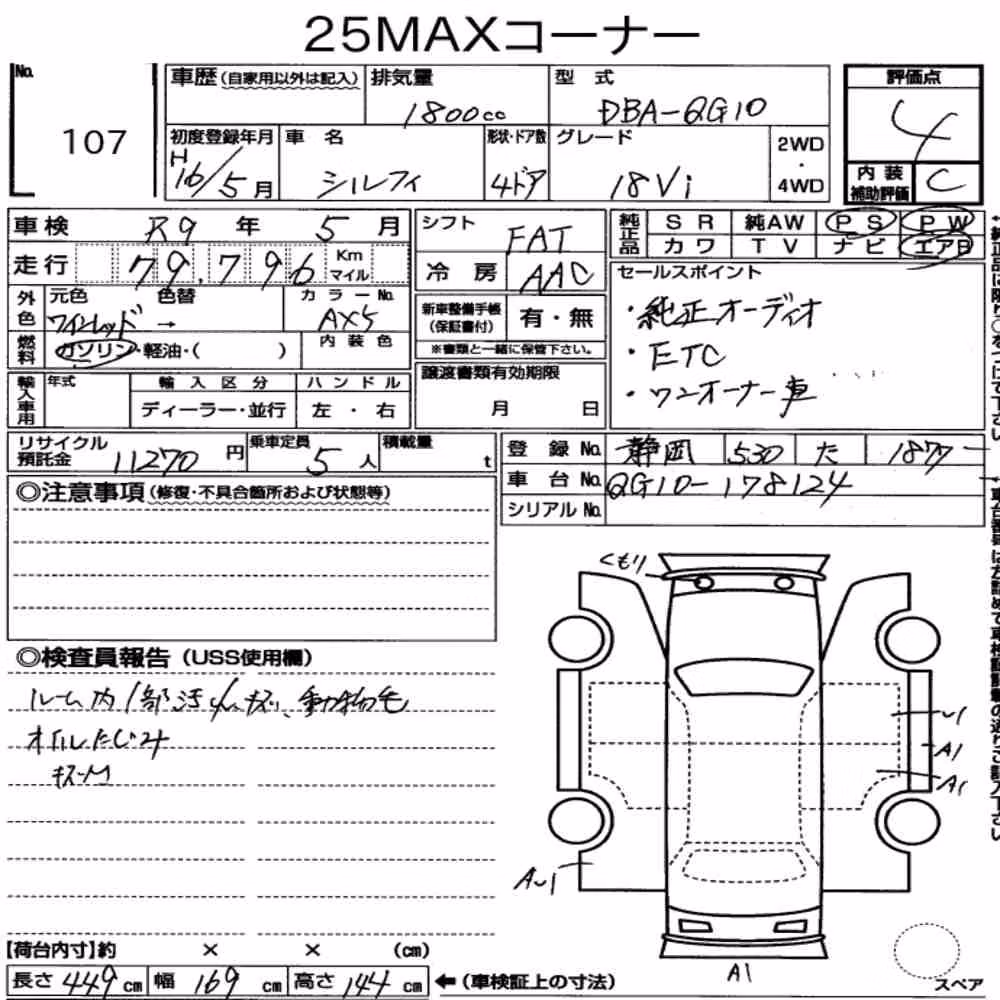 25MAXコーナー
No. 107
車歴(自家用以外は記入) 排気量 1800cc 型式 DBA-QG10 評価点 4
初度登録年月 H16/5月 車名 シルフィ 形状・ドア数 4ドア グレード 18Vi 2WD・4WD 内装補助評価 C
車検 R9年5月 シフト FAT 純正品 SR 純AW PS PW
カワ TV ナビ エアB
走行 79,796 Km マイル 冷房 AAC セールスポイント
外色 元色 ワインレッド → 色替 カラーNo. AX5 新車整備手帳(保証書付) 有・無 ・純正オーディオ
燃料 ガソリン・軽油・( ) 内装色 ※書類と一緒に保管下さい。 ・ETC
輸入車用 年式 輸入区分 ハンドル 譲渡書類有効期限 ・ワンオーナー車
ディーラー・並行 左・右 月 日
リサイクル預託金 11270円 乗車定員 5人 積載量 t 登録No. 静岡 530 た 1877
車台No. QG10-178124
シリアルNo.
◎注意事項(修復・不具合箇所および状態等)
くもり
◎検査員報告(USS使用欄)
ルーム内1部汚れ、キズ、動物毛
オイルにじみ
キズ凹
U1
A1
A1
AU1
【荷台内寸】約 × × (cm)
長さ 449cm 幅 169cm 高さ 144cm ←(車検証上の寸法)
A1
スペア